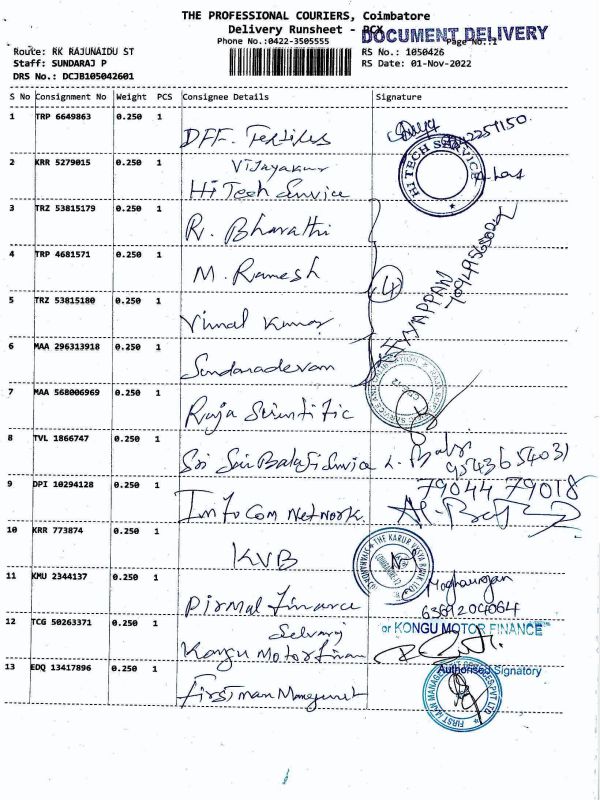 THE PROFESSIONAL COURIERS, Coimbatore
Delivery Runsheet - PCX
DOCUMENT DELIVERY
Phone No.:0422-3505555
Page No.:1
Route: RK RAJUNAIDU ST
RS No.: 1050426
Staff: SUNDARAJ P
RS Date: 01-Nov-2022
DRS No.: DCJB105042601
S No Consignment No Weight PCS Consignee Details Signature
1 TRP 6649863 0.250 1 DFF. Textiles
2 KRR 5279015 0.250 1 Vijayakumar
Hi Tech Service
HI TECH SERVICE
3 TRZ 53815179 0.250 1 R. Bharathi
4 TRP 4681571 0.250 1 M. Ramesh
4
5 TRZ 53815180 0.250 1 Vimal Kumar
6 MAA 296313918 0.250 1 Sundaradevan
7 MAA 568006969 0.250 1 Raja Scientific
8 TVL 1866747 0.250 1 Sri Sai Balaji Service L. Babu
9543654031
9 DPI 10294128 0.250 1 Info Com Network
79044 79018
10 KRR 773874 0.250 1 KVB
THE KARUR VYSYA BANK LTD
11 KMU 2344137 0.250 1 Pirmal Finance
6369204064
12 TCG 50263371 0.250 1 Selvaraj
Kongu Motor Finan
or KONGU MOTOR FINANCE
Authorised Signatory
13 EDQ 13417896 0.250 1 First man Management
FIRST MAN MANAGEMENT SERVICES PVT LTD